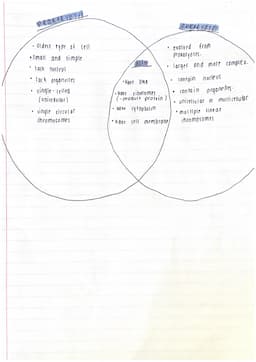 PROKARYOTIC
• oldest type of cell
• small and simple
• lack nucleus
• lack organelles
• single-celled
(unicellular)
• single circular
chromosomes
BOTH
• have DNA
• have ribosomes
(-produce protein)
• have cytoplasm
• have cell membrane
EUKARYOTIC
• evolved from
prokaryotes.
• larger and more complex.
• contain nucleus
• contain organelles.
• unicellular or multicellular
• multiple linear
chromosomes